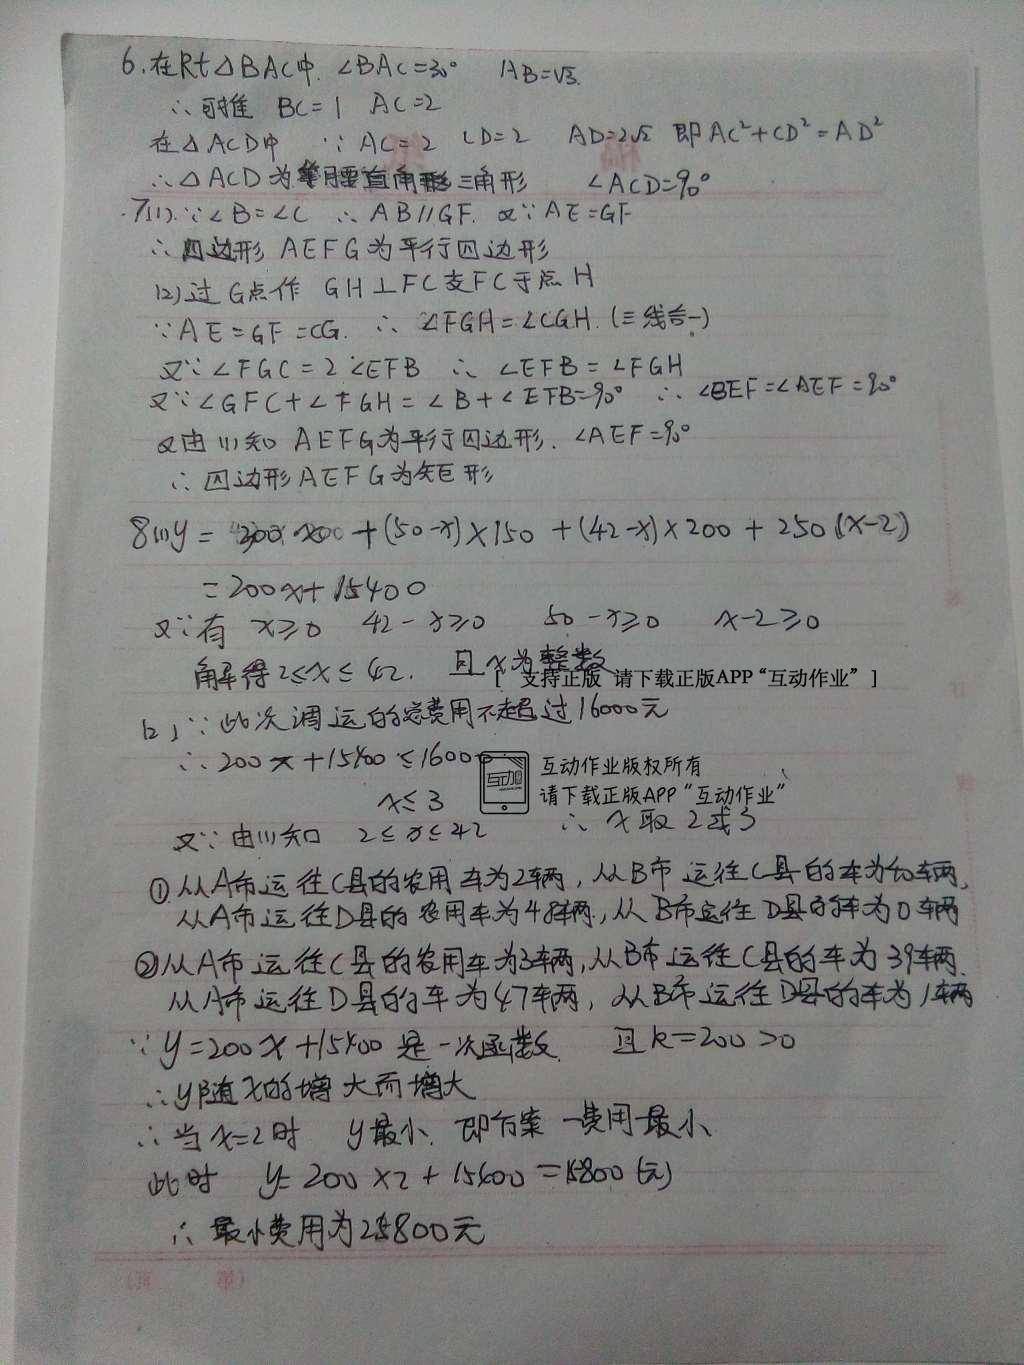 6.在Rt△BAC中. ∠BAC=30° AB=√3.
∴可推 BC=1 AC=2
在△ACD中 ∵AC=2 CD=2 AD=2√2 即AC²+CD²=AD²
∴△ACD为等腰直角三角形 ∠ACD=90°
7(1).∵∠B=∠C ∴AB//GF. 又∵AE=GF
∴四边形AEFG为平行四边形
(2)过G点作 GH⊥FC交FC于点H
∵AE=GF=CG. ∴∠FGH=∠CGH.(三线合一)
又∵∠FGC=2∠EFB ∴∠EFB=∠FGH
又∵∠GFC+∠FGH=∠B+∠EFB=90° ∴∠BEF=∠AEF=90°
又由(1)知AEFG为平行四边形. ∠AEF=90°
∴四边形AEFG为矩形
8(1)y= +(50-x)×150+(42-x)×200+250(x-2)
=200x+15400
又∵有 x≥0 42-x≥0 50-x≥0 x-2≥0
解得2≤x≤42. 且x为整数
[ 支持正版 请下载正版APP“互动作业” ]
(2)∵此次调运的总费用不超过16000元
∴200x+15400≤16000
互动作业版权所有
请下载正版APP“互动作业”
x≤3
又∵由(1)知 2≤x≤42 ∴x取2或3
①从A市运往C县的农用车为2车两,从B市运往C县的车为40车两,
从A市运往D县的农用车为48车两,从B市运往D县的车为0车两
②从A市运往C县的农用车为3车两,从B市运往C县的车为39车两.
从A市运往D县的车为47车两,从B市运往D县的车为1车两
∵y=200x+15400是一次函数. 且k=200>0
∴y随x的增大而增大
∴当x=2时 y最小.即方案一费用最小
此时 y=200×2+15400=15800(元)
∴最小费用为15800元